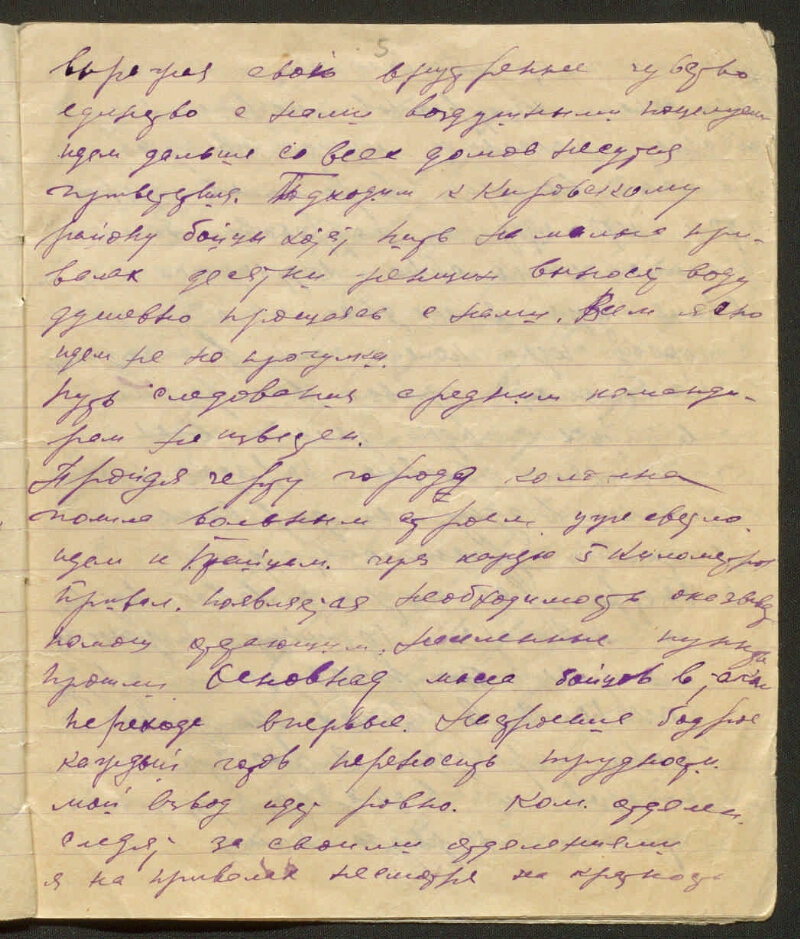 5
выражая свои внутренние чувство
единство с нами воздушными поцелуями
идем дальше со всех домов несутся
приветствия. Подходим к Кировскому
району бойцы хотят пить на малых при-
валах десятки женщин выносят воду
душевно прощаясь с нами. Всем ясно
идем не на прогулку
Путь следования средним команди-
рам не известен.
Пройдя черту города колонна
пошла вольным строем уже светло.
идем к через каждые 5 километров
Привал. появляется необходимость оказывать
помощь отстающим. населенные пункты
прошли Основная масса бойцов в таком
переходе впервые. Настроение бодрое
каждый готов переносить трудности.
мой взвод идет ровно. Ком. отделен.
следят за своими отделениями
я на привалах несмотря на